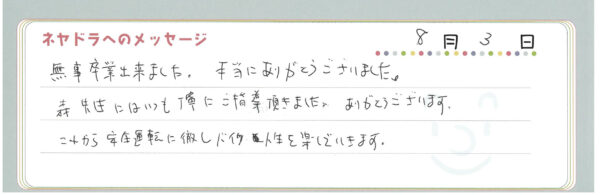 ネヤドラへのメッセージ
8月3日
無事卒業出来ました。本当にありがとうございました。
森先生にはいつも俺にご指導頂きました。ありがとうございます。
これから安全運転に徹しバイク人生を楽しんでいきます。